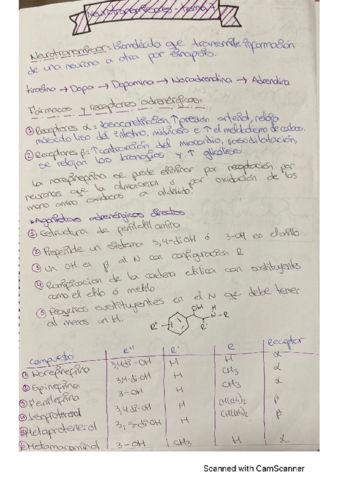 Neurotransmisores - tema 7
Neurotransmisor = Biomolécula que transmite información
de una neurona a otra por sinapsis.
tirosina → Dopa → Dopamina → Noradrenalina → Adrenalina
Fármacos y receptores adrenérgicos:
① Receptores α: vasoconstricción ↑ presión arterial, relaja
músculo liso del intestino, ↑ el metabolismo de
② Receptores β: ↑ contracción del miocardio, vasodilatación,
se relajan los bronquios y ↑
La norepinefrina se puede eliminar por recaptación por
neuronas que la almacenan ó por oxidación de los
mono amino oxidasas a aldehído.
Agonistas adrenérgicos directos
① Estructura de feniletilamina
② sistema 3,4-diOH ó 3-OH en el anillo
③ Un OH en β al N con configuración R
④ Ramificación de la cadena etílica con sustituyentes
como el etilo ó metilo
⑤ Pequeños sustituyentes en el N que debe tener
al menos un H.
OH
H
N-R
R'
R"
Compuesto R" R' R Receptor
① Norepinefrina 3,4di-OH H H α
② Epinefrina 3,4di-OH H CH₃ α
③ Fenilefrina 3-OH H CH₃ α
④ Isoproterenol 3,4di-OH H CH(CH₃)₂ β
⑤ Metaproterenol 3,5-diOH H CH(CH₃)₂ β
⑥ Metaraminol 3-OH CH₃ H α
Scanned with CamScanner